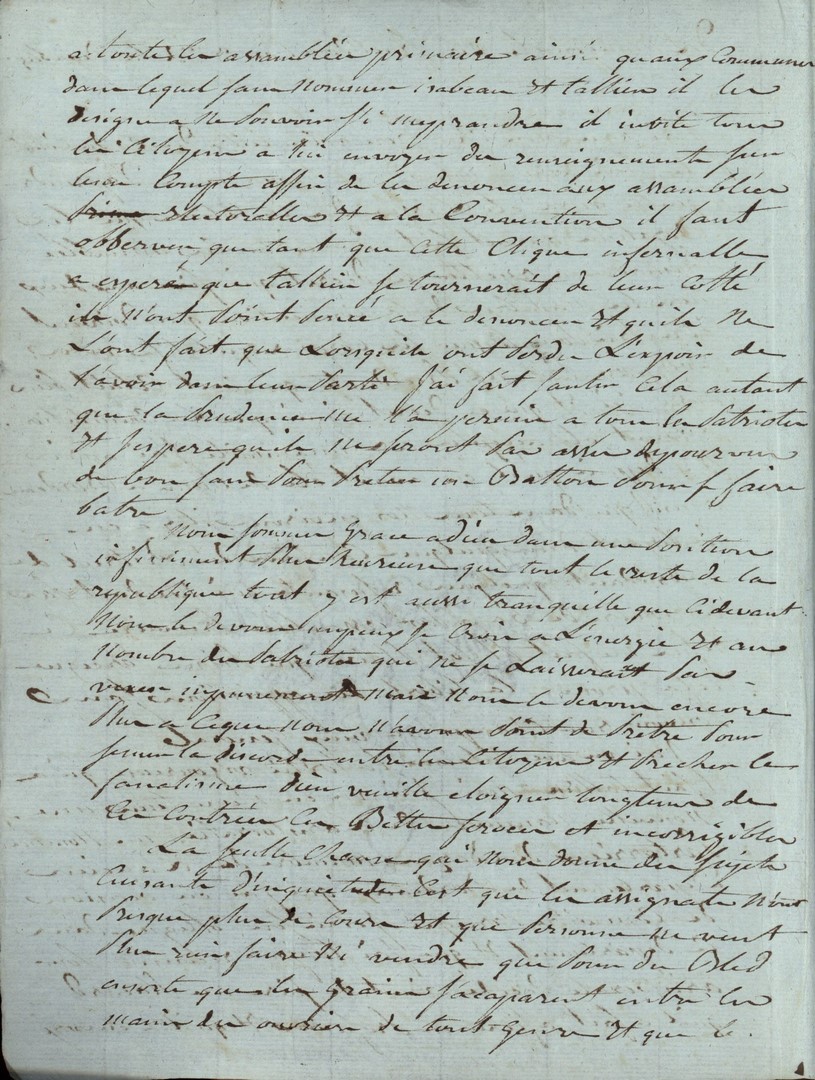 a toutes les assamblées primaire ainsi quaux Communes
dans lequel sans nommer isabeau et tallien il les
designe a ne pouvoir si meprandre il invite tous
les Citoyens a lui envoyer des renseignements sur
leur Compte affin de les denoncer aux assamblées
electoralles et a la Convention il faut
observer que tant que Cette Clique infernalle
a esperé que tallien se tournerait de leur Cotté
ils n'ont point pensé a le denoncer et quils ne
L'ont fait que Lorsquils ont perdu L'espoir de
l'avoir dans leur parti j'ai fait sentir Cela autant
que la prudence me l'a permis a tous les patriotes
et j'espere quils ne seront pas assés depourvus
de bon sens pour preter un Batton pour se faire
batre
Nous sommes Grace a dieu dans une position
infiniment plus heureuse que tout le reste de la
republique tout y est aussi tranquille que Cidevant
Nous le devons je Crois a L'energie et au
Nombre des patriotes qui ne se Laisseraient pas
impunement Mais Nous le devons encore
plus a Ceque nous n'avons point de pretre pour
semer la discorde entre les Citoyens et precher le
fanatisme dieu veuille eloigner longtems de
Ces Contrées Ces Bettes feroces et incorrigibles
La seulle Chause qui Nous donne des sujets
Cuisants d'inquietudes C'est que les assignats N'ont
presque plus de Cours et que personne ne veut
plus rien faire Ni vendre que pour du Bled
ensorte que les Grains s'acaparent entre les
mains des ouvriers de tout Genre et que le